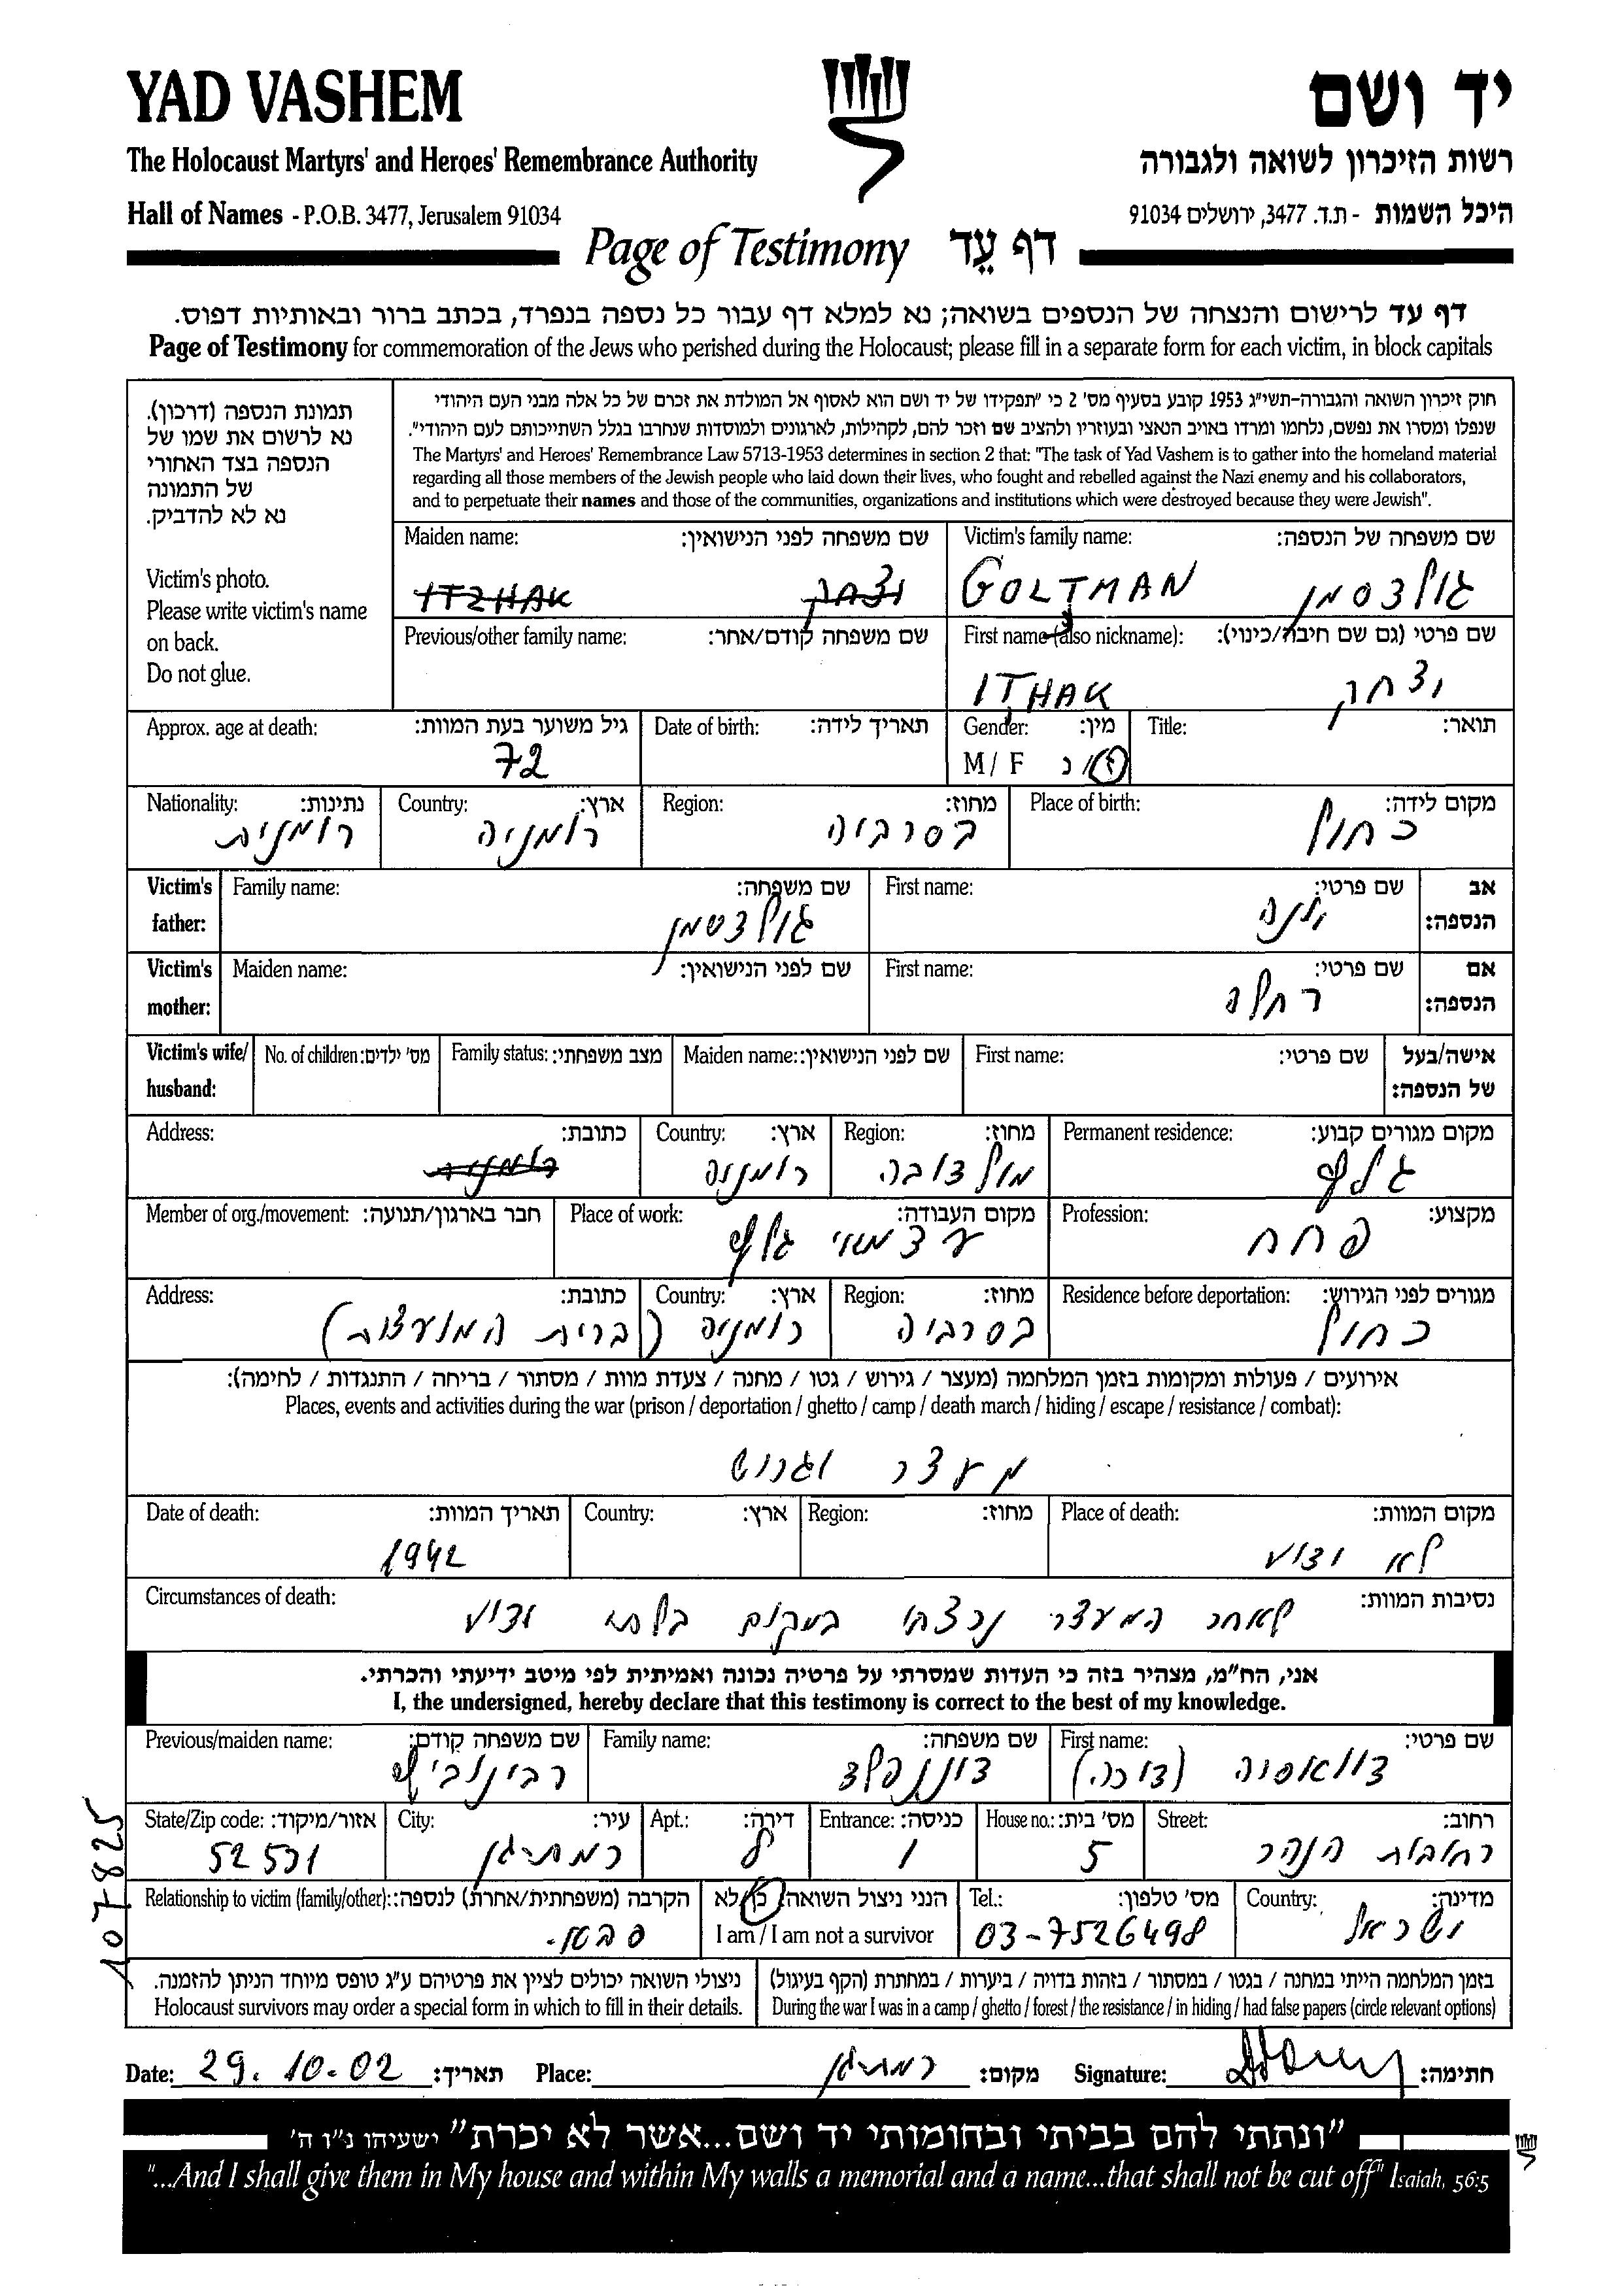 YAD VASHEM
יד ושם
The Holocaust Martyrs' and Heroes' Remembrance Authority
רשות הזיכרון לשואה ולגבורה
Hall of Names - P.O.B. 3477, Jerusalem 91034
היכל השמות - ת.ד. 3477, ירושלים 91034
Page of Testimony דף עֵד
דף עד לרישום והנצחה של הנספים בשואה; נא למלא דף עבור כל נספה בנפרד, בכתב ברור ובאותיות דפוס.
Page of Testimony for commemoration of the Jews who perished during the Holocaust; please fill in a separate form for each victim, in block capitals
תמונת הנספה (דרכון).
נא לרשום את שמו של
הנספה בצד האחורי
של התמונה
נא לא להדביק.
Victim's photo.
Please write victim's name
on back.
Do not glue.
חוק זיכרון השואה והגבורה-תשי"ג 1953 קובע בסעיף מס' 2 כי "תפקידו של יד ושם הוא לאסוף אל המולדת את זכרם של כל אלה מבני העם היהודי
שנפלו ומסרו את נפשם, נלחמו ומרדו באויב הנאצי ובעוזריו ולהציב שם וזכר להם, לקהילות, לארגונים ולמוסדות שנחרבו בגלל השתייכותם לעם היהודי".
The Martyrs' and Heroes' Remembrance Law 5713-1953 determines in section 2 that: "The task of Yad Vashem is to gather into the homeland material
regarding all those members of the Jewish people who laid down their lives, who fought and rebelled against the Nazi enemy and his collaborators,
and to perpetuate their names and those of the communities, organizations and institutions which were destroyed because they were Jewish".
Victim's family name: שם משפחה של הנספה:
GOLTMAN גולדסמן
Maiden name: שם משפחה לפני הנישואין:
ITZHAK יצחק
First name (also nickname): שם פרטי (גם שם חיבה/כינוי):
ITHAK יצחק
Previous/other family name: שם משפחה קודם/אחר:
Title: תואר:
Gender: מין:
M / F ז/נ
Date of birth: תאריך לידה:
Approx. age at death: גיל משוער בעת המוות:
72
Place of birth: מקום לידה:
כחול
Region: מחוז:
בסרביה
Country: ארץ:
רומניה
Nationality: נתינות:
רומנית
Victim's father: אב הנספה:
First name: שם פרטי:
Family name: שם משפחה:
גולדסמן
Victim's mother: אם הנספה:
First name: שם פרטי:
רחל
Maiden name: שם לפני הנישואין:
Victim's wife/ husband: אישה/בעל של הנספה:
First name: שם פרטי:
Maiden name: שם לפני הנישואין:
Family status: מצב משפחתי:
No. of children: מס' ילדים:
Permanent residence: מקום מגורים קבוע:
Region: מחוז:
מולדובה
Country: ארץ:
רומניה
Address: כתובת:
רומניה
Profession: מקצוע:
פחח
Place of work: מקום העבודה:
עצמאי
Member of org./movement: חבר בארגון/תנועה:
Residence before deportation: מגורים לפני הגירוש:
כחול
Region: מחוז:
בסרביה
Country: ארץ:
רומניה
Address: כתובת:
(ברית המועצות)
אירועים / פעולות ומקומות בזמן המלחמה (מעצר / גירוש / גטו / מחנה / צעדת מוות / מסתור / בריחה / התנגדות / לחימה):
Places, events and activities during the war (prison / deportation / ghetto / camp / death march / hiding / escape / resistance / combat):
מעצר וגרוש
Place of death: מקום המוות:
לא ידוע
Region: מחוז:
Country: ארץ:
Date of death: תאריך המוות:
1942
Circumstances of death: נסיבות המוות:
לאחר המעצר נרצח במקום בלתי ידוע
אני, הח"מ, מצהיר בזה כי העדות שמסרתי על פרטיה נכונה ואמיתית לפי מיטב ידיעתי והכרתי.
I, the undersigned, hereby declare that this testimony is correct to the best of my knowledge.
First name: שם פרטי:
Family name: שם משפחה:
Previous/maiden name: שם משפחה קודם:
רבינוביץ
Street: רחוב:
רחובות הנהר
House no.: מס' בית:
5
Entrance: כניסה:
1
Apt.: דירה:
8
City: עיר:
רמת-גן
State/Zip code: אזור/מיקוד:
52531
Country: מדינה:
ישראל
Tel.: מס' טלפון:
03-7526498
הנני ניצול השואה: כן/לא
I am / I am not a survivor
Relationship to victim (family/other): הקרבה (משפחתית/אחרת) לנספה:
בזמן המלחמה הייתי במחנה / בגטו / במסתור / בזהות בדויה / ביערות / במחתרת (הקף בעיגול)
During the war I was in a camp / ghetto / forest / the resistance / in hiding / had false papers (circle relevant options)
ניצולי השואה יכולים לציין את פרטיהם ע"ג טופס מיוחד הניתן להזמנה.
Holocaust survivors may order a special form in which to fill in their details.
107825
Date: 29.10.02 תאריך: Place: רמת-גן מקום: Signature: חתימה:
"ונתתי להם בביתי ובחומותי יד ושם...אשר לא יכרת" ישעיהו נ"ו ה'
"...And I shall give them in My house and within My walls a memorial and a name...that shall not be cut off" Isaiah, 56:5